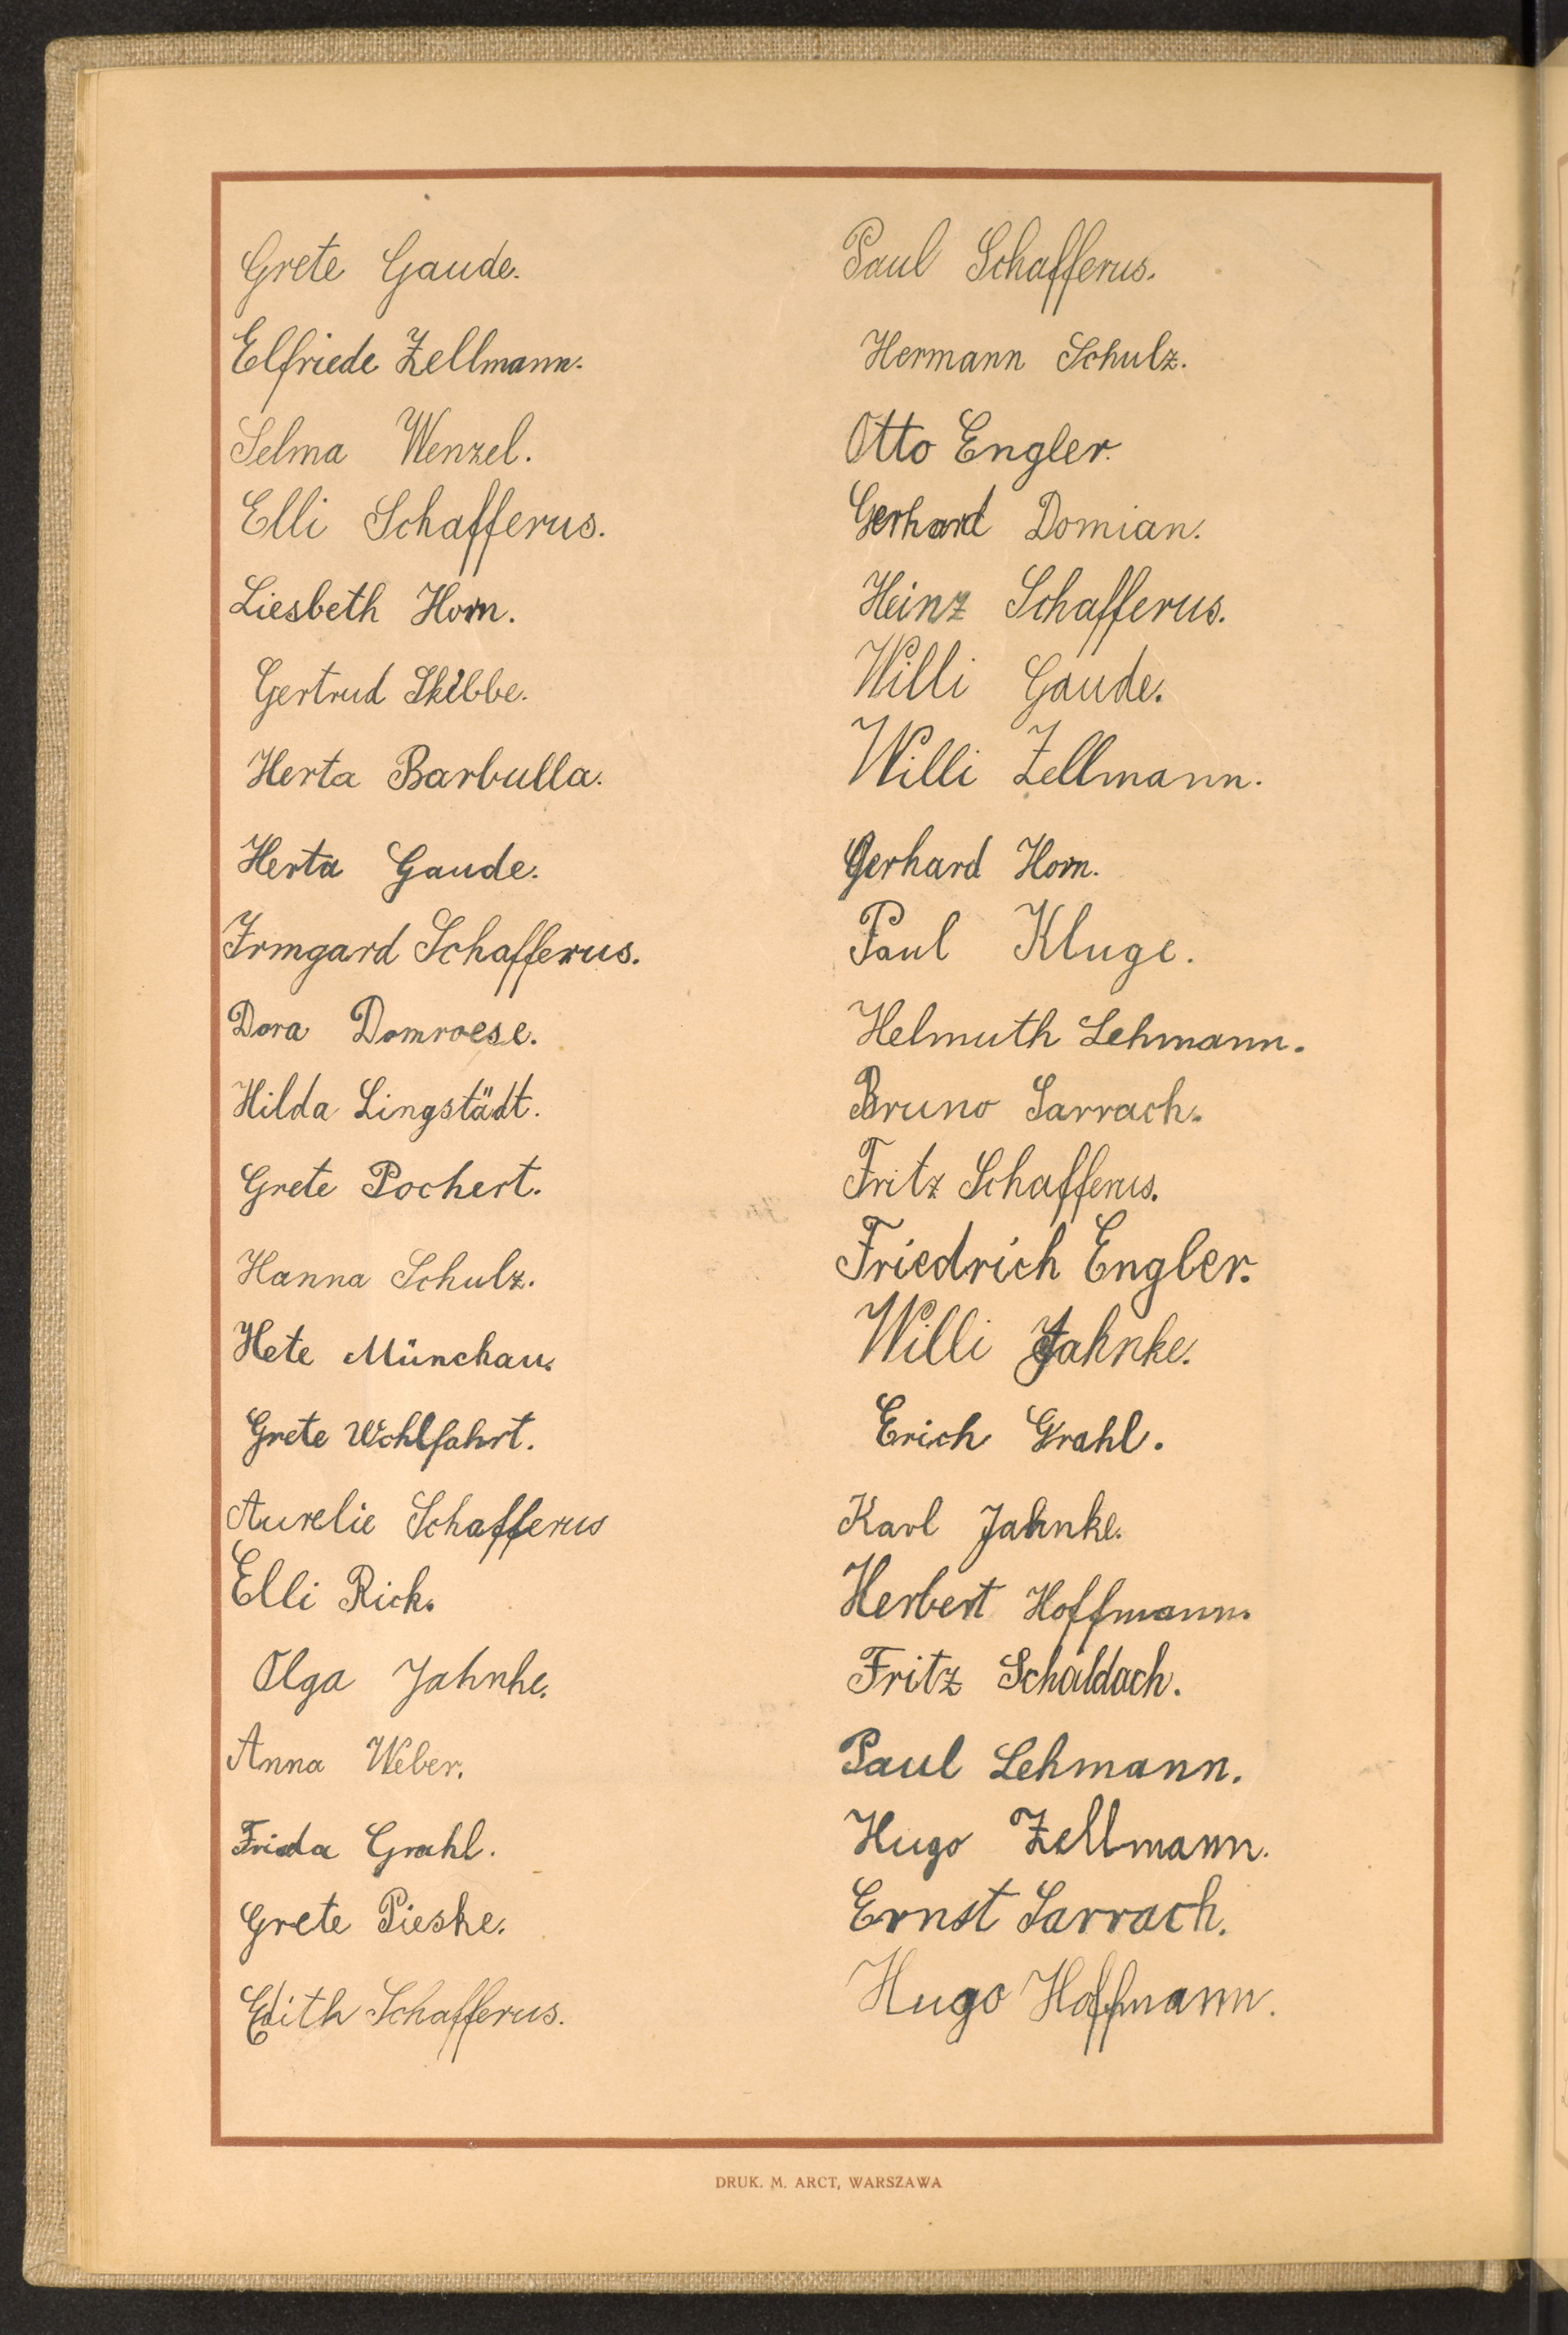 Grete Gaude.
Elfriede Zellmann.
Selma Wenzel.
Elli Schafferus.
Liesbeth Horn.
Gertrud Skibbe.
Herta Barbulla.
Herta Gaude.
Irmgard Schafferus.
Dora Domroese.
Hilda Lingstädt.
Grete Pochert.
Hanna Schulz.
Hete Münchau.
Grete Wohlfahrt.
Aurelie Schafferus
Elli Rick.
Olga Jahnke.
Anna Weber.
Frieda Grahl.
Grete Pieske.
Edith Schafferus.
Paul Schafferus.
Hermann Schulz.
Otto Engler.
Gerhard Domian.
Heinz Schafferus.
Willi Gaude.
Willi Zellmann.
Gerhard Horn.
Paul Kluge.
Helmuth Lehmann.
Bruno Sarrach.
Fritz Schafferus.
Friedrich Engler.
Willi Jahnke.
Erich Grahl.
Karl Jahnke.
Herbert Hoffmann.
Fritz Schaldach.
Paul Lehmann.
Hugo Zellmann.
Ernst Sarrach.
Hugo Hoffmann.
DRUK. M. ARCT, WARSZAWA